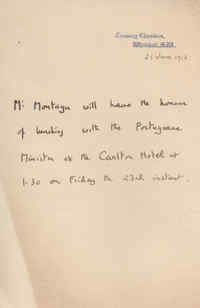 Treasury Chambers,
Whitehall, S.W.
21 June 191
Mr Montagu will have the honour
of lunching with the Portuguese
Minister at the Carlton Hotel at
1.30 on Friday the 23rd instant.